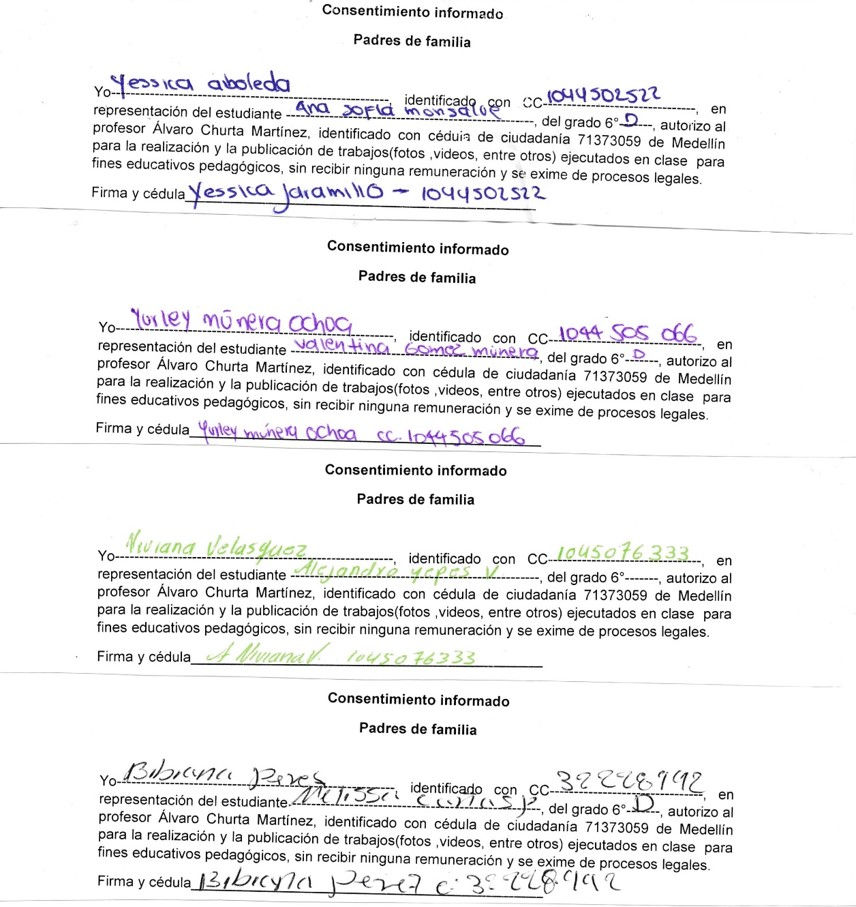 Consentimiento informado
Padres de familia
Yo Yessica aboleda identificado con CC 1044502522, en
representación del estudiante Ana sofia monsalve, del grado 6° D, autorizo al
profesor Álvaro Churta Martínez, identificado con cédula de ciudadanía 71373059 de Medellín
para la realización y la publicación de trabajos(fotos ,videos, entre otros) ejecutados en clase para
fines educativos pedagógicos, sin recibir ninguna remuneración y se exime de procesos legales.
Firma y cédula Yessica Jaramillo - 1044502522
Consentimiento informado
Padres de familia
Yo Yurley múnera ochoa, identificado con CC 1044 505 066, en
representación del estudiante valentina Gomez múnera, del grado 6° D, autorizo al
profesor Álvaro Churta Martínez, identificado con cédula de ciudadanía 71373059 de Medellín
para la realización y la publicación de trabajos(fotos ,videos, entre otros) ejecutados en clase para
fines educativos pedagógicos, sin recibir ninguna remuneración y se exime de procesos legales.
Firma y cédula Yurley múnera ochoa cc. 1044505066
Consentimiento informado
Padres de familia
Yo Viviana Velasquez, identificado con CC 1045076333, en
representación del estudiante Alejandro yepes V, del grado 6°, autorizo al
profesor Álvaro Churta Martínez, identificado con cédula de ciudadanía 71373059 de Medellín
para la realización y la publicación de trabajos(fotos ,videos, entre otros) ejecutados en clase para
fines educativos pedagógicos, sin recibir ninguna remuneración y se exime de procesos legales.
Firma y cédula Viviana V. 1045076333
Consentimiento informado
Padres de familia
Yo Bibiana Peres identificado con CC 32228992, en
representación del estudiante. Melissa, del grado 6° D, autorizo al
profesor Álvaro Churta Martínez, identificado con cédula de ciudadanía 71373059 de Medellín
para la realización y la publicación de trabajos(fotos ,videos, entre otros) ejecutados en clase para
fines educativos pedagógicos, sin recibir ninguna remuneración y se exime de procesos legales.
Firma y cédula Bibiana Perez c. 32228.992